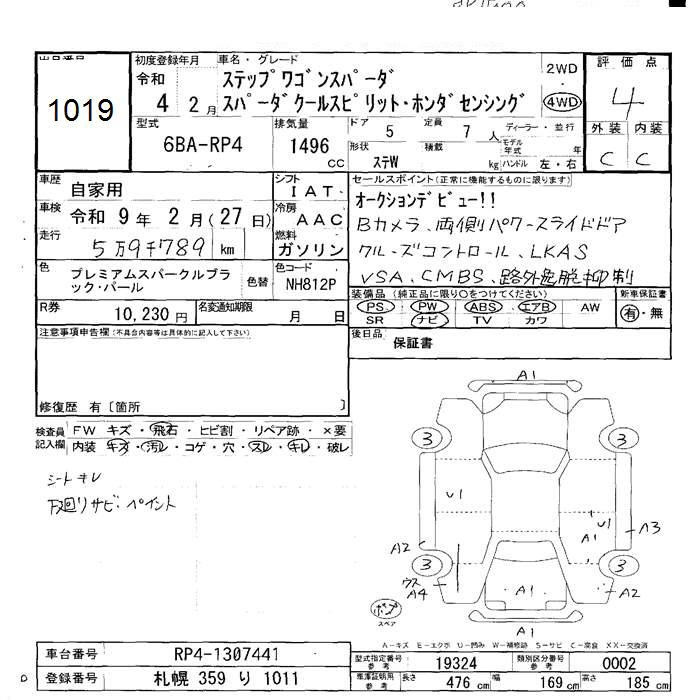 1019
初度登録年月
令和
4 2月
車名・グレード
ステップワゴンスパーダ
スパーダクールスピリット・ホンダセンシング
2WD
4WD
評価点
4
外装 内装
C C
型式
6BA-RP4
排気量
1496
CC
ドア 5
定員 7 人
形状 ステW
積載 kg
ディーラー・並行
モデル年式 年
ハンドル 左・右
車歴 自家用
シフト IAT
車検 令和 9年 2月(27日)
冷房 AAC
走行 5万9千789 km
燃料 ガソリン
色 プレミアムスパークルブラック・パール
色替
色コード NH812P
R券 10,230 円
名変通知期限 月 日
セールスポイント(正常に機能するものに限ります)
オークションデビュー!!
Bカメラ、両側パワースライドドア
クルーズコントロール、LKAS
VSA、CMBS、路外逸脱抑制
装備品(純正品に限り○をつけてください)
PS PW ABS エアB AW
SR ナビ TV カワ
新車保証書
有・無
後日品 保証書
注意事項申告欄(不具合内容等は具体的に記入して下さい)
修復歴 有〔箇所 〕
検査員記入欄
FW キズ・飛石・ヒビ割・リペア跡・×要
内装 キズ・汚レ・コゲ・穴・スレ・キレ・破レ
シートキレ
下廻りサビ・ペイント
A1
3 3
U1
U1
A1
A3
A2
3 3
ウス
A4
A1
A2
A1
スペア
A-キズ E-エクボ U-凹み W-補修跡 S-サビ C-腐食 XX-交換済
車台番号 RP4-1307441
登録番号 札幌 359 り 1011
型式指定番号 参考 19324
類別区分番号 参考 0002
車庫証明用 参考 長さ 476 cm 幅 169 cm 高さ 185 cm